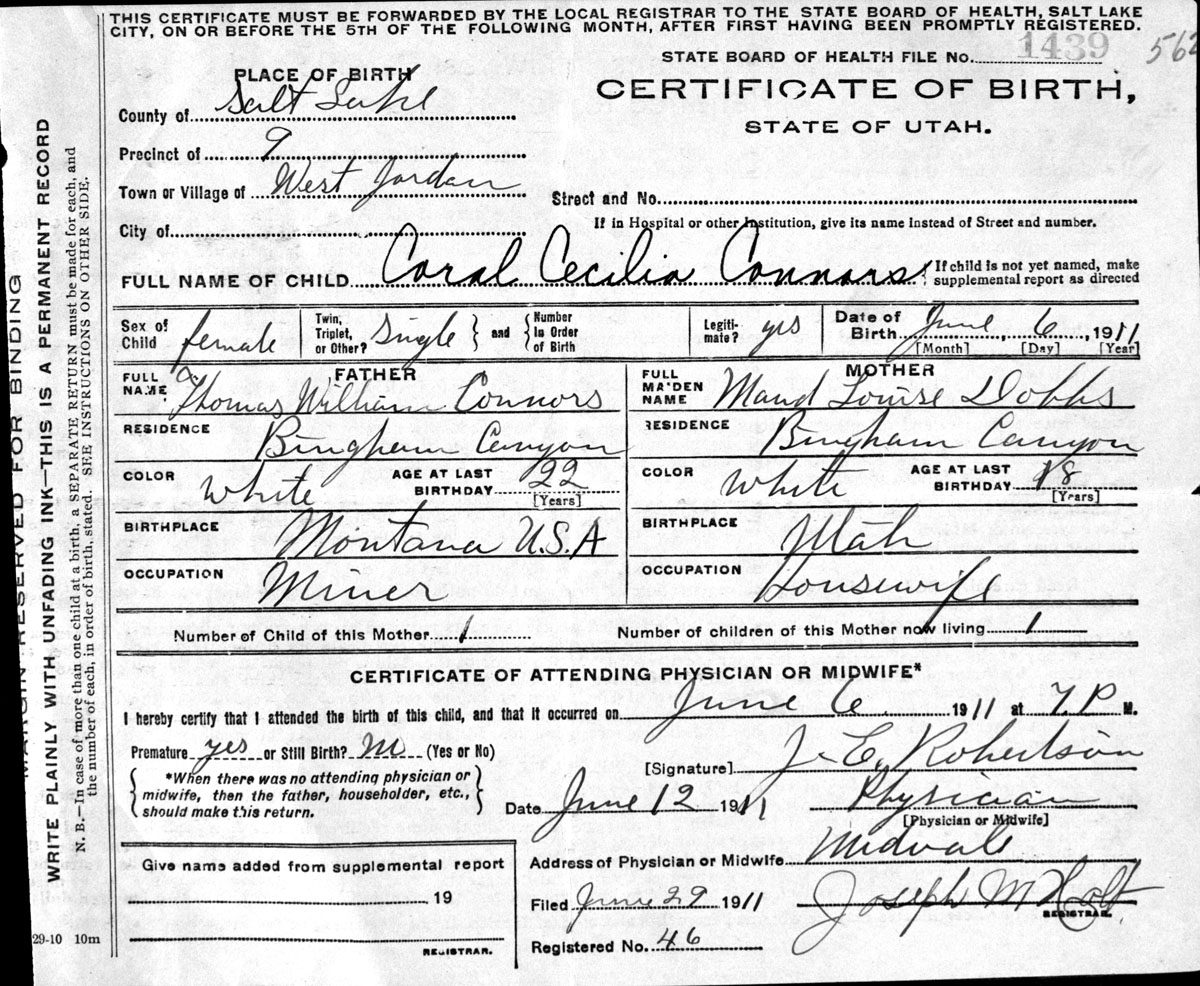 THIS CERTIFICATE MUST BE FORWARDED BY THE LOCAL REGISTRAR TO THE STATE BOARD OF HEALTH, SALT LAKE
CITY, ON OR BEFORE THE 5TH OF THE FOLLOWING MONTH, AFTER FIRST HAVING BEEN PROMPTLY REGISTERED.
STATE BOARD OF HEALTH FILE No. 1439 562
PLACE OF BIRTH
CERTIFICATE OF BIRTH,
County of Salt Lake
STATE OF UTAH.
Precinct of 9
Town or Village of West Jordan
Street and No.
City of
If in Hospital or other Institution, give its name instead of Street and number.
FULL NAME OF CHILD Coral Cecilia Connors { If child is not yet named, make
supplemental report as directed
Sex of Child female Twin, Triplet, or Other? Single } and { Number In Order of Birth Legiti- mate? yes Date of Birth June 6, 1911
[Month] [Day] [Year]
FATHER MOTHER
FULL NAME Thomas William Connors FULL MAIDEN NAME Maud Louise Dobbs
RESIDENCE Bingham Canyon RESIDENCE Bingham Canyon
COLOR White AGE AT LAST BIRTHDAY 22 [Years] COLOR White AGE AT LAST BIRTHDAY 18 [Years]
BIRTHPLACE Montana U.S.A BIRTHPLACE Utah
OCCUPATION Miner OCCUPATION Housewife
Number of Child of this Mother 1 Number of children of this Mother now living 1
CERTIFICATE OF ATTENDING PHYSICIAN OR MIDWIFE*
I hereby certify that I attended the birth of this child, and that it occurred on June 6 1911 at 7.P M.
Premature yes or Still Birth? no (Yes or No)
[Signature] J. E. Robertson
{ *When there was no attending physician or
midwife, then the father, householder, etc.,
should make this return. }
Date June 12 1911 Physician
[Physician or Midwife]
Address of Physician or Midwife Midvale
Give name added from supplemental report
19
REGISTRAR.
Filed June 29 1911 Joseph M Holt
REGISTRAR.
Registered No. 46
29-10 10m
MARGIN RESERVED FOR BINDING
WRITE PLAINLY WITH UNFADING INK—THIS IS A PERMANENT RECORD
N. B.—In case of more than one child at a birth, a SEPARATE RETURN must be made for each, and
the number of each, in order of birth, stated. SEE INSTRUCTIONS ON OTHER SIDE.